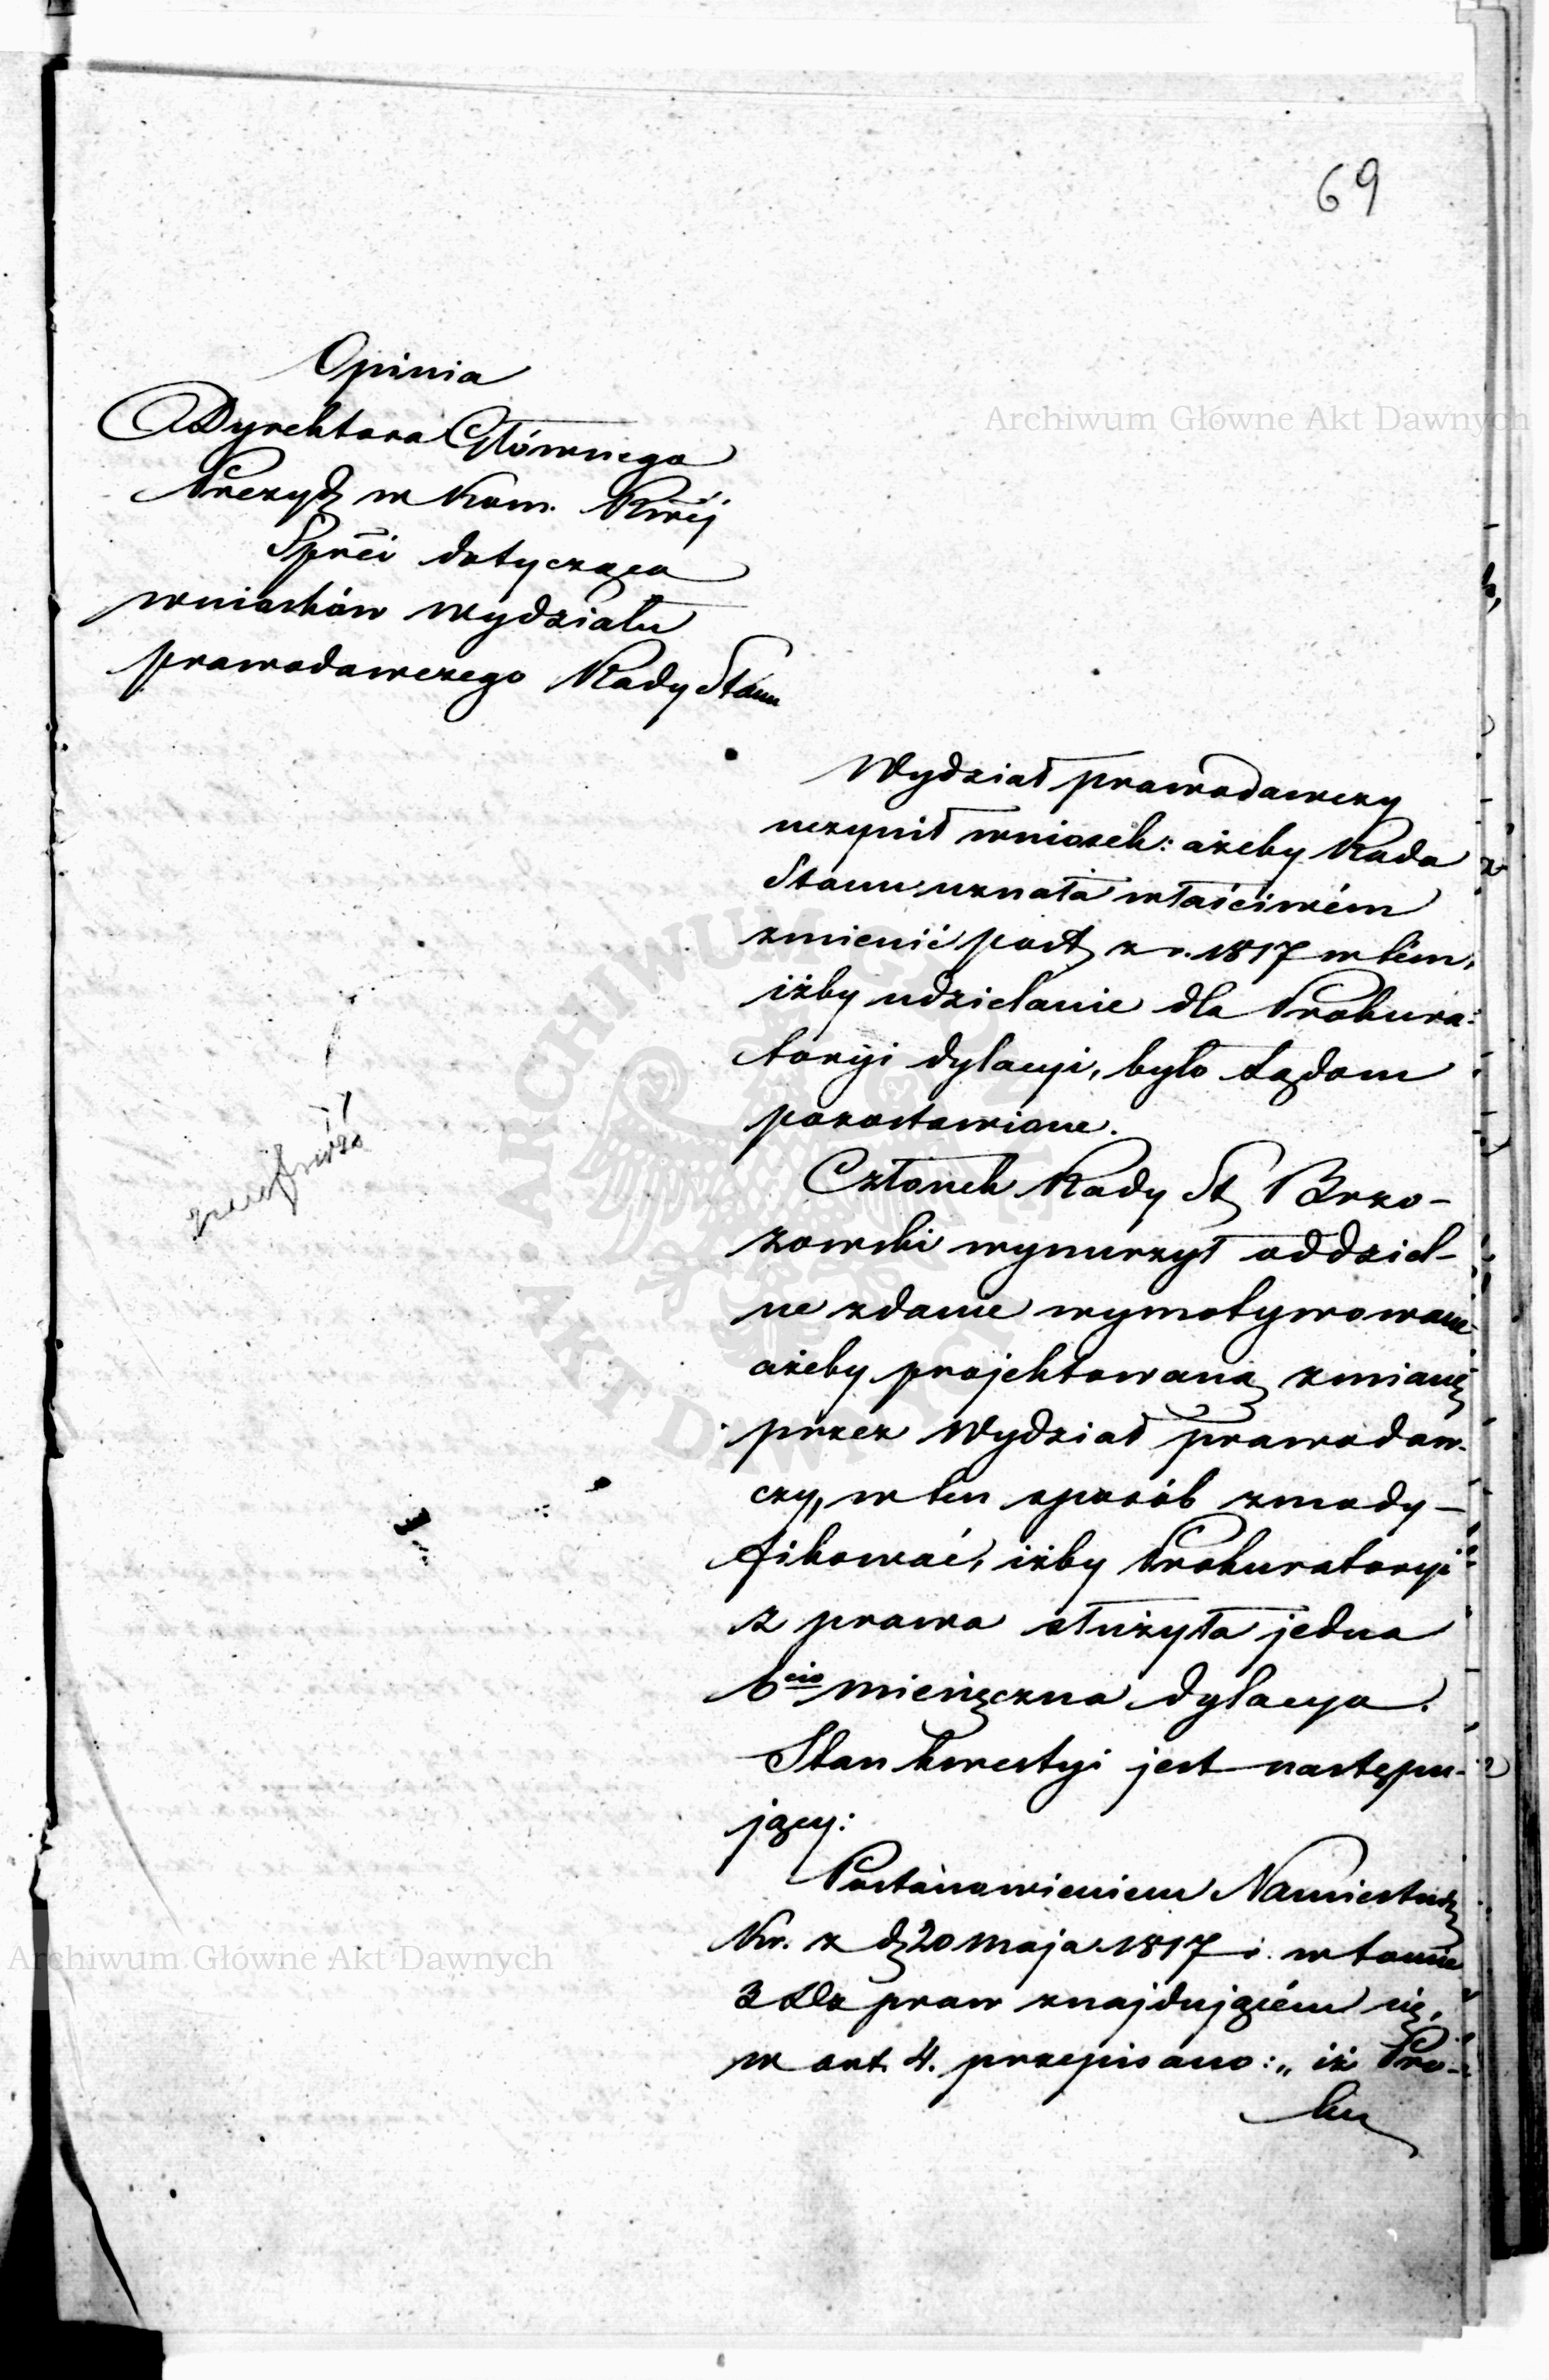 69
Opinia
Dyrektora Głównego
Prezydz w Kom. Rwéj
Sprći dotycząca
wniosków wydziału
prawodawczego Rady Stanu
Wydział prawodawczy
uczynił wniosek: ażeby Rada
Stanu uznała właściwém
zmienić post z r. 1817 w tém,
iżby udzielanie dla Prokura:
toryi dylacyi, było Sądom
pozostawione.
Członek Rady St Brzo-
zowski wynurzył oddziel-
ne zdanie wymotywowane
ażeby projektowaną zmianę
przez Wydział prawodaw-
czy, w ten sposób zmody-
fikować, iżby Prokuratoryi
z prawa służyła jedna
6cio miesięczna dylacya.
Stan kwestyi jest następu-
jący:
Postanowieniem Namiestnika
Kr. z d 20 maja 1817 r. w tomie
3 Dz praw znajdującém się,
w art. 4. przepisano: „iż Pro-
ku
Archiwum Główne Akt Dawnych
Archiwum Główne Akt Dawnych
ARCHIWUM GŁÓWNE AKT DAWNYCH